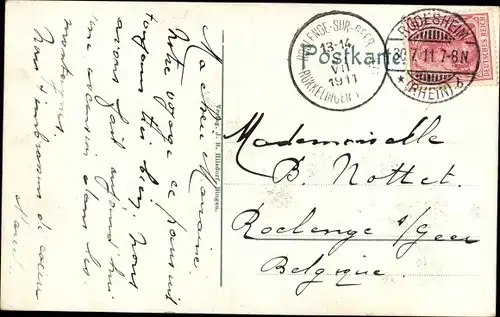 Postkarte
ROCLENGE-SUR-GEER
13-14
VII
1911
RUKKELINGEN
RÜDESHEIM
30.7.11.7-8N
* (RHEIN) *
DEUTSCHES REICH
Ma chère Marraine.
Notre voyage se poursuit
toujours très bien. Nous
avons fait aujourd'hui
une excursion dans les
montagnes
Nous t'embrassons de cœur
Verlag J. H. Hilsdorf, Bingen.
Mademoiselle
B. Nottet.
Roclenge s/Geer
Belgique